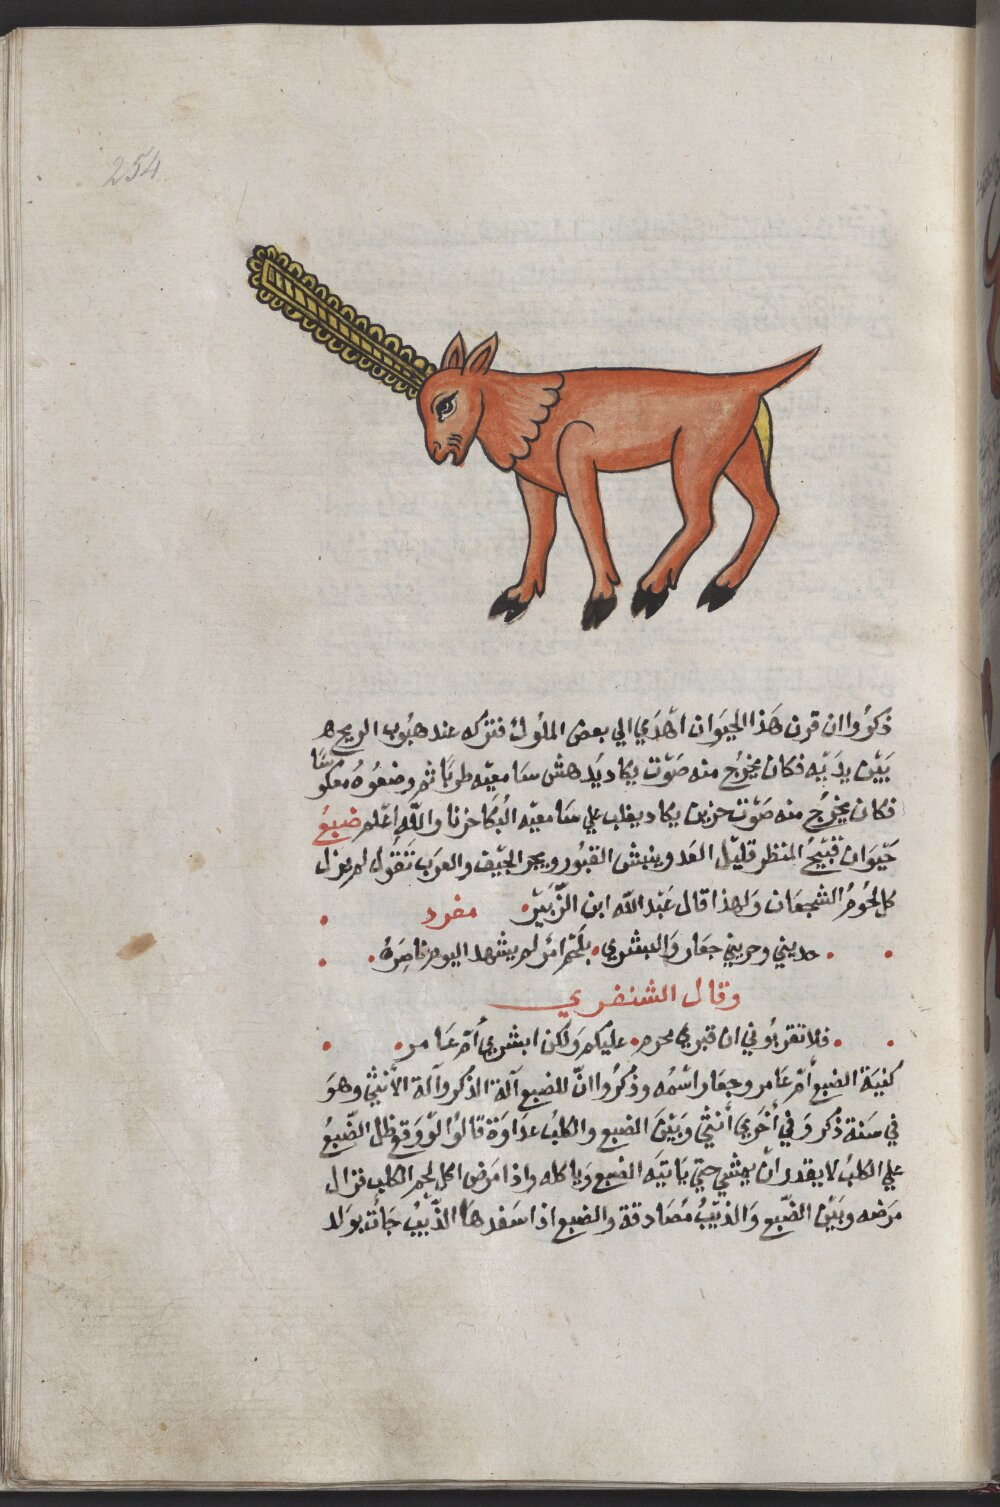 254
ذكروا ان قرن هذا الحيوان اهدي الي بعض الملوك فتركه عند هبوب الريح
بين يديه فكان يخرج منه صوت يكاد يدهش سامعيه طربًا ثم وضعوه معكوسًا
فكان يخرج منه صوت حزين يكاد يغلب علي سامعيه البكا حزنا والله اعلم ضبع
حيوان قبيح المنظر قليل العدو ينبش القبور ويجر الجيف والعرب تقول لم يزل
كل لحوم الشجعان ولهذا قال عبد الله ابن الزبير مفرد
خديني وجريني جعار وابشري بلحم امر لم يشهد اليوم ناصره
وقال الشنفري
فلا تقربوني ان قبري محرم عليكم ولكن ابشري أم عامر
كنية الضبع أم عامر وجعار اسمه وذكروا انّ للضبع آلة الذكر وآلة الأنثي وهو
في سنة ذكر وفي أخري أنثي وبين الضبع والكلب عداوة قالوا لو وقع ظل الضّبع
علي الكلب لا يقدر ان يمشي حتي ياتيه الضبع وياكله واذا مرض اكل لحم الكلب فزال
مرضه وبين الضّبع والذيب مصادقة والضبع اذا سفدها الذّيب جأت بولد